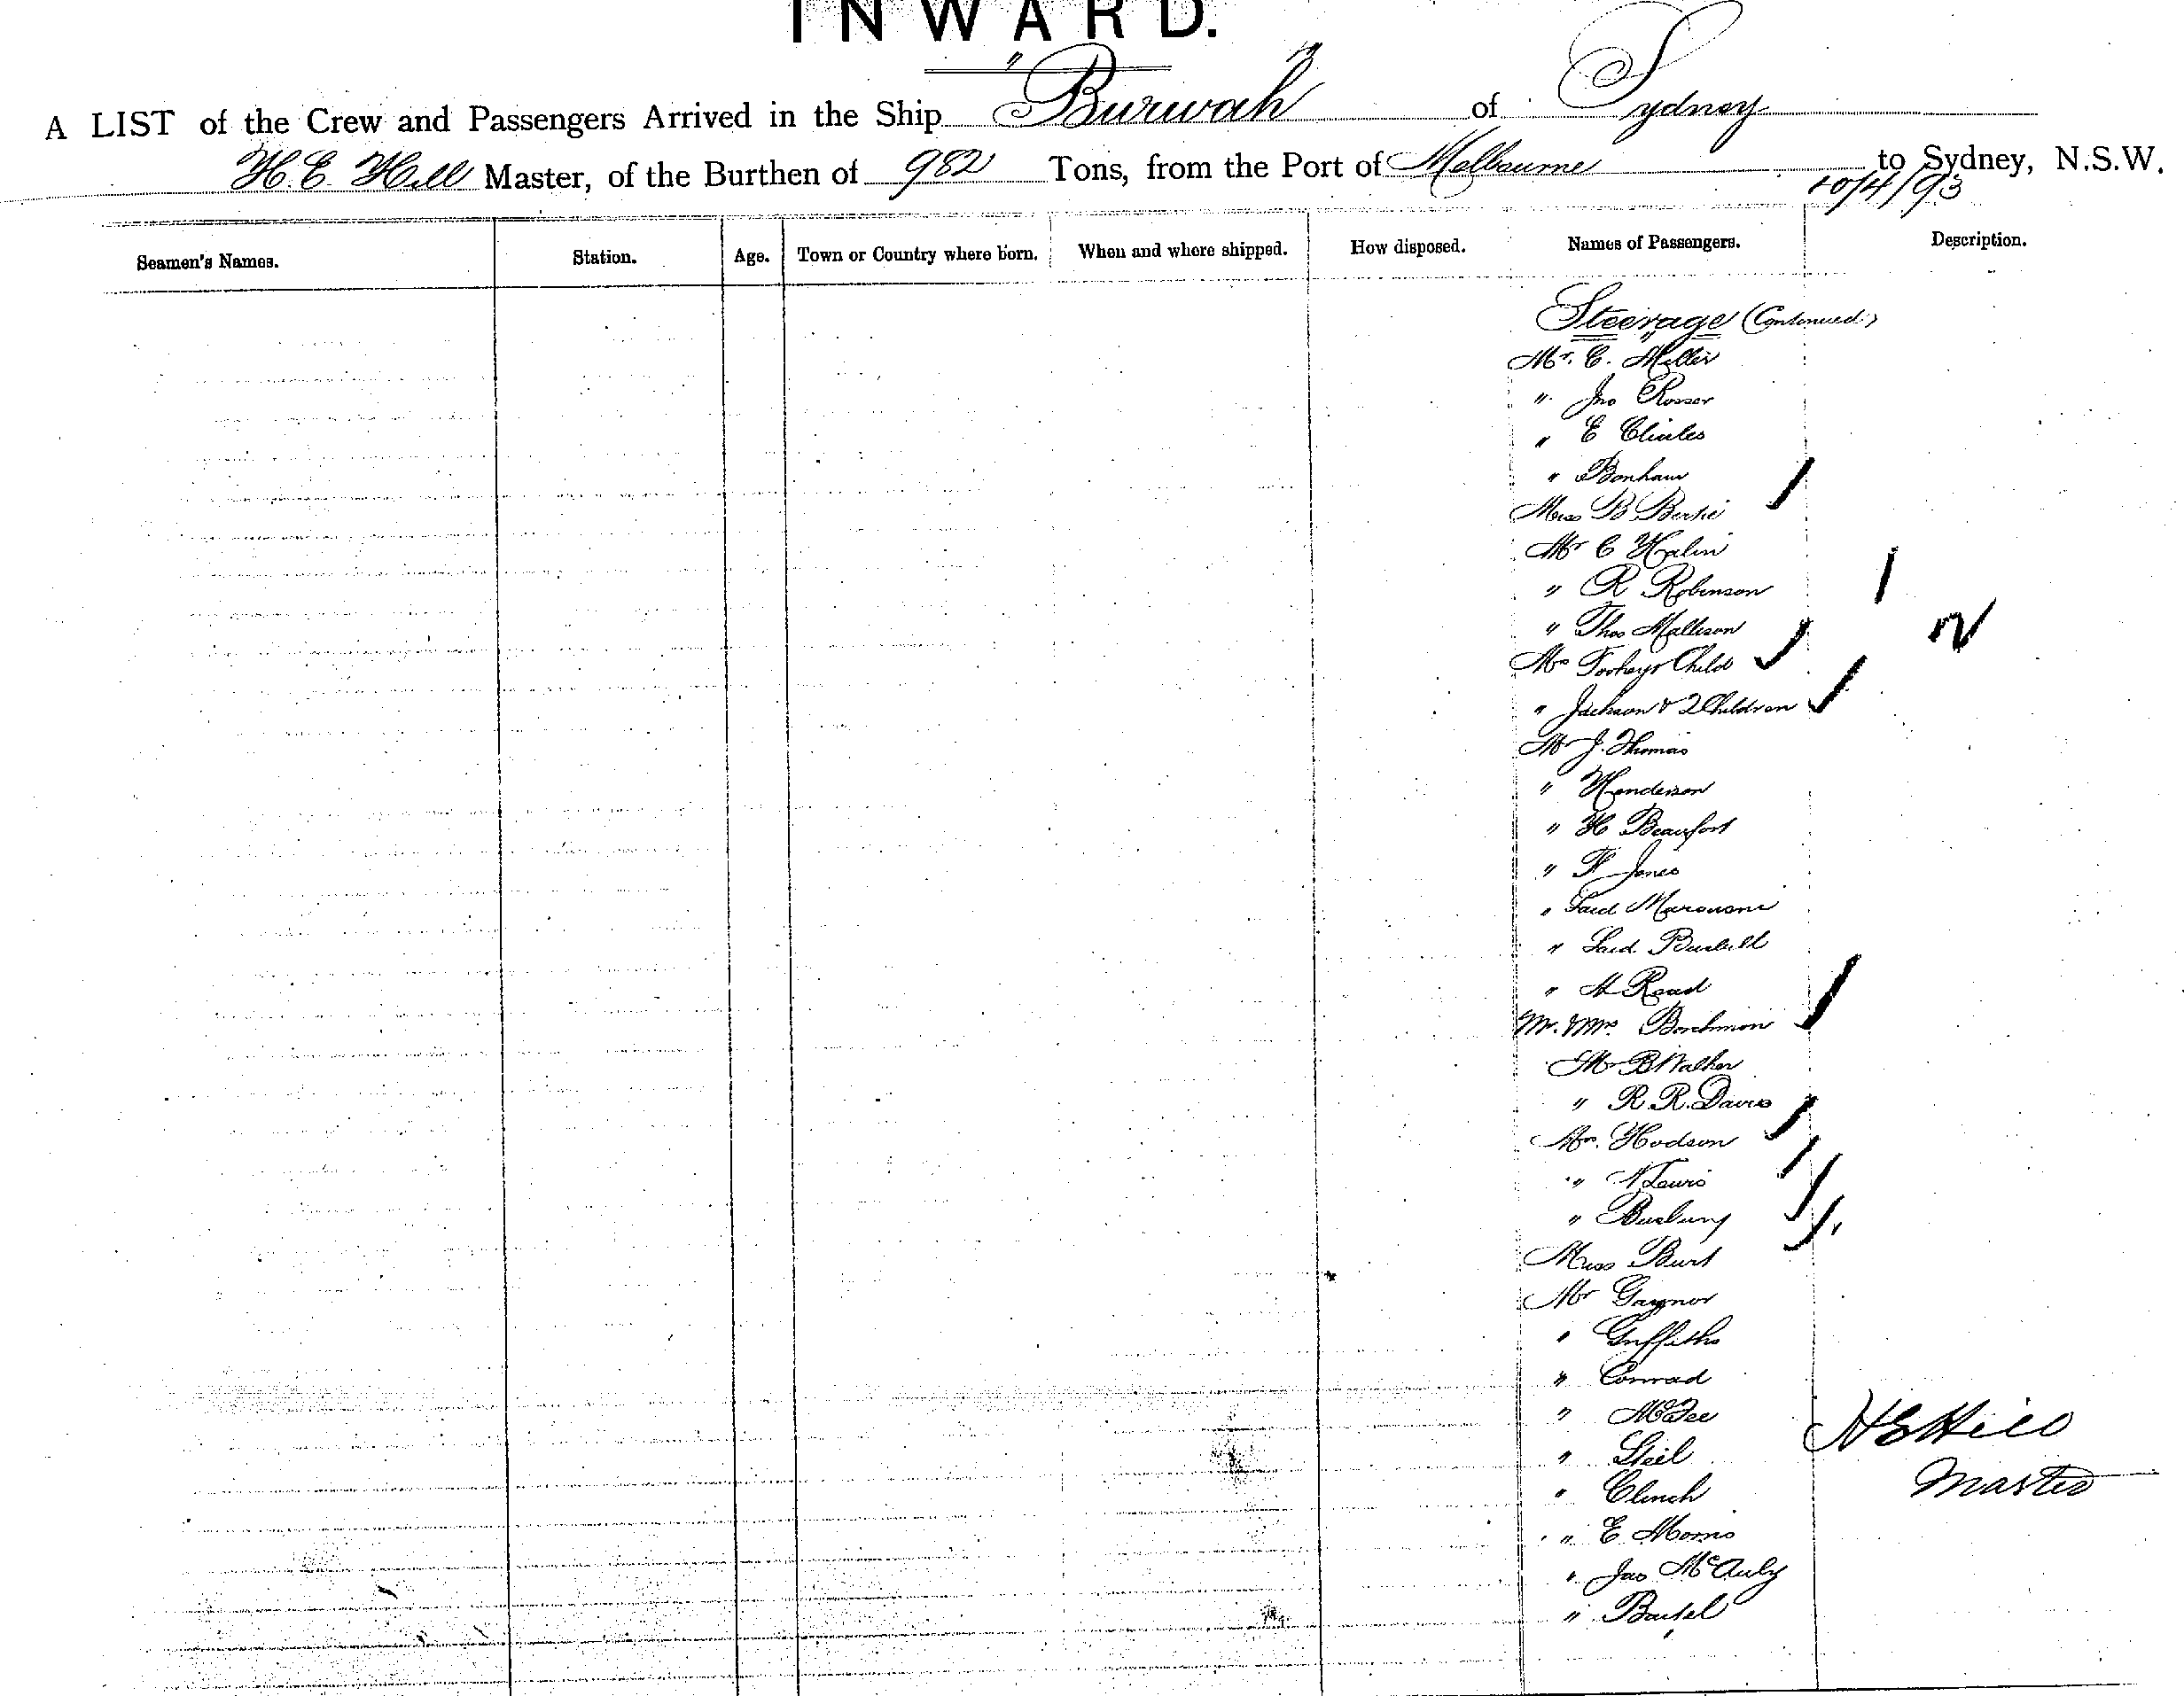 INWARD.
A LIST of the Crew and Passengers Arrived in the Ship "Burwah" of Sydney
H. E. Hill Master, of the Burthen of 982 Tons, from the Port of Melbourne to Sydney, N.S.W.
10/4/93
Seamen's Names. Station. Age. Town or Country where born. When and where shipped. How disposed. Names of Passengers. Description.
Steerage (Continued)
Mr. C. Miller
" Jno Rosser
" E
" Bonham
Miss B.
Mr C
" R Robinson
" Thos Mallison
Child
" Jackson & 2 Children
Mr J. Thomas
" Henderson
" H Beaufort
" F Jones
" Said
" Said
" Road
Mr. & Mrs.
Mr B Walker
" R. R. Davis
Mrs. Hodson
"
"
Miss Burt
Mr Gaynor
" Griffiths
" Conrad
" McFee
"
" Clinch
" E. Morris
" Jas McAuly
"
H E Hill
Master